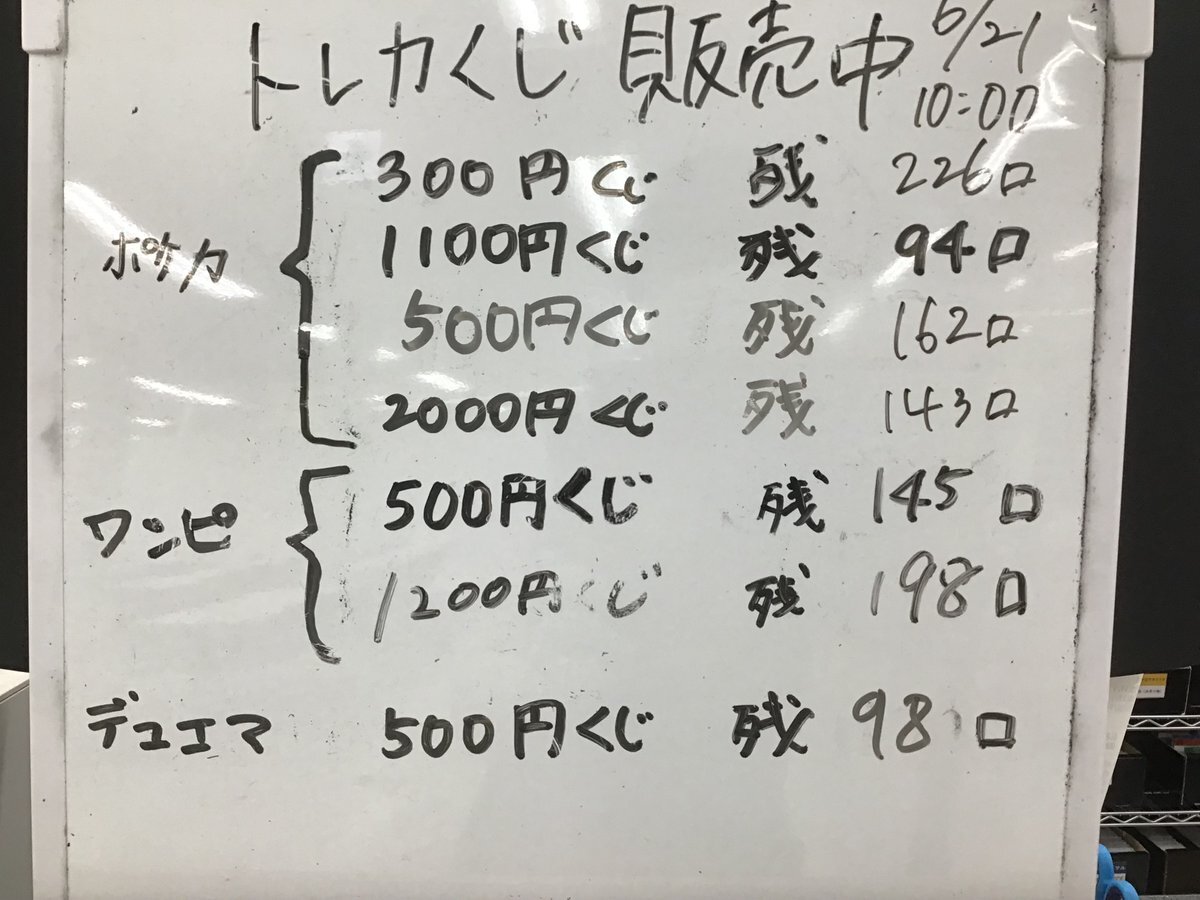 トレカくじ 販売中 6/21
10:00
ポケカ
300円くじ 残 226口
1100円くじ 残 94口
500円くじ 残 162口
2000円くじ 残 143口
ワンピ
500円くじ 残 145口
1200円くじ 残 198口
デュエマ 500円くじ 残 98口